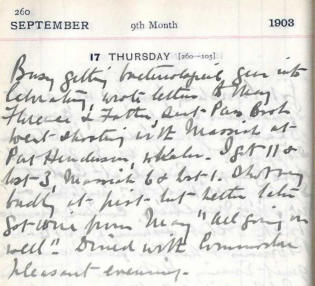 260
SEPTEMBER 9th Month 1903
17 THURSDAY [260—105]
Busy getting bacteriological gear into
laboratory, wrote letters to May
& Father, sent Pass Book
went shooting with at
Pat Henderson, whaler. I got 11 &
lost 3, 6 & lost 1. Shooting
badly at first but better later
Got wire from May "All going on
well". Dined with Commodore
pleasant evening.